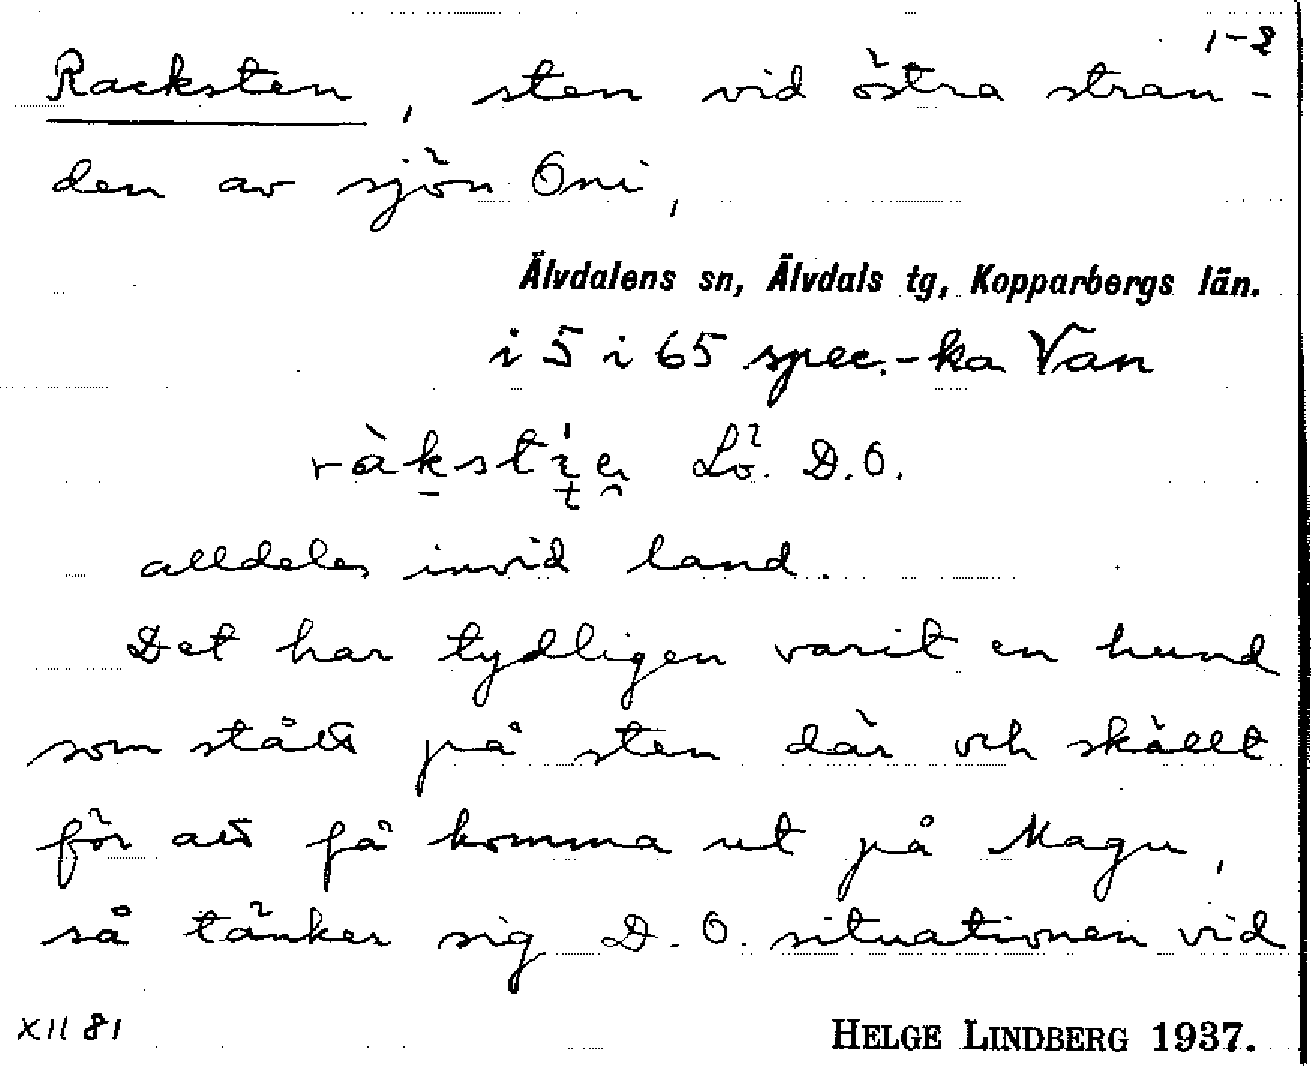 1-2
Racksten, sten vid östra stran-
den av sjön Oni,
Älvdalens sn, Älvdals tg, Kopparbergs län.
i 5 i 65 spec.-ka Van
Lö. D.O.
alldeles invid land.
Det har tydligen varit en hund
som stått på sten där och skällt
för att få komma ut på Magu,
så tänker sig D.O. situationen vid
XII 81
HELGE LINDBERG 1937.